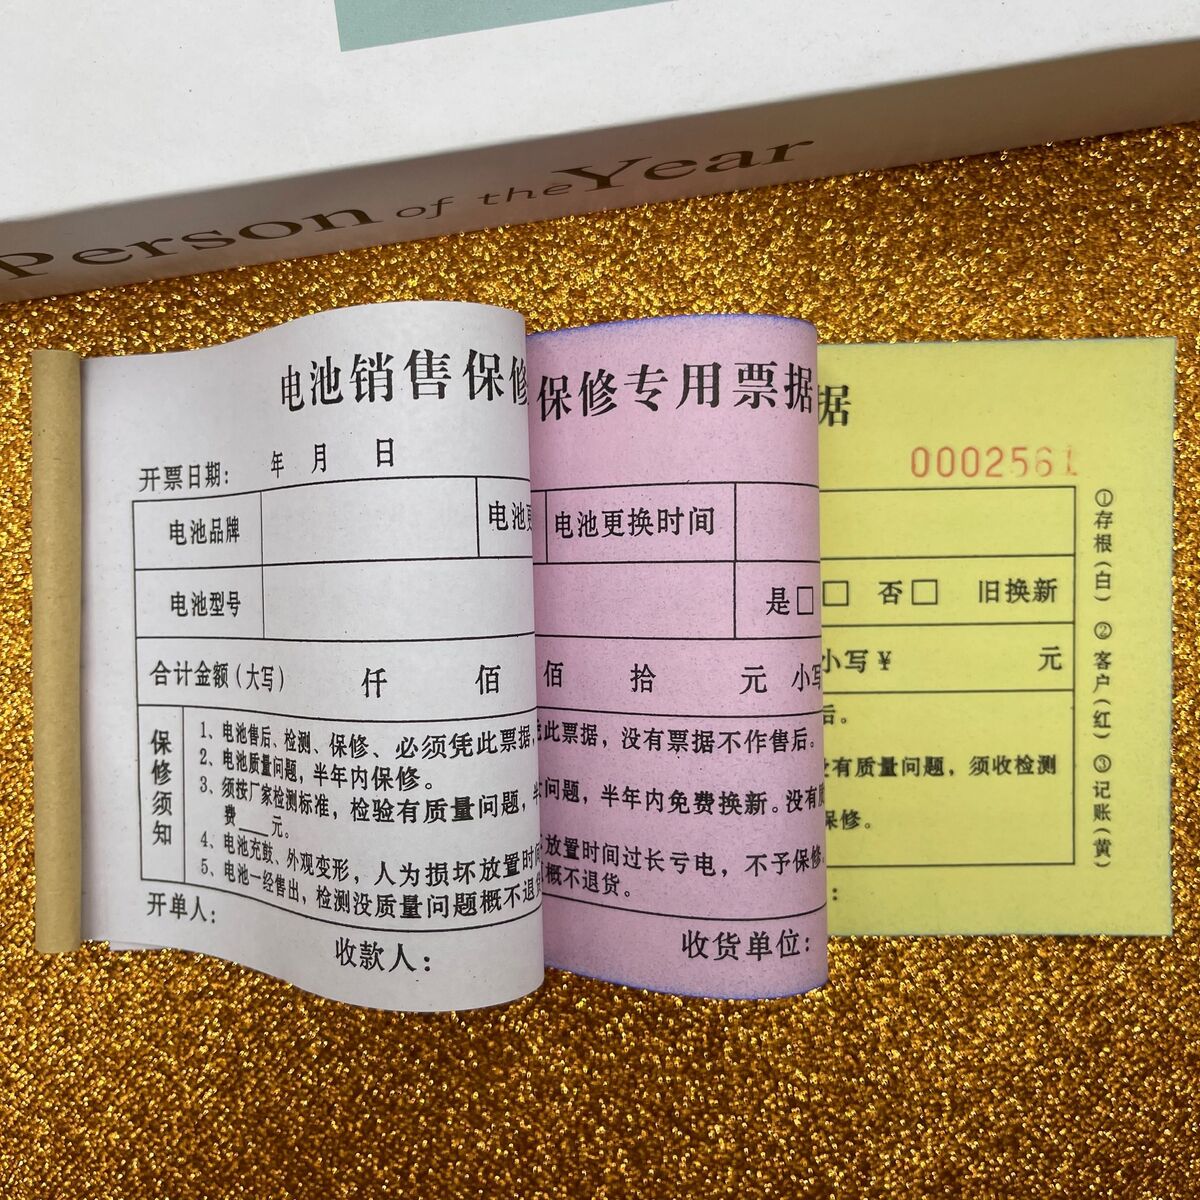 Person of the Year
电池销售保修 保修专用票据 据
0002561
开票日期: 年 月 日
电池品牌 电池更 电池更换时间
电池型号 是□ □ 否□ 旧换新
合计金额(大写) 仟 佰 佰 拾 元 小写 小写¥ 元
保修须知
1、电池售后、检测、保修、必须凭此票据, 凭此票据,没有票据不作售后。 后。
2、电池质量问题,半年内保修。
3、须按厂家检测标准,检验有质量问题,半 问题,半年内免费换新。没有质 有质量问题,须收检测
费____元。
4、电池充鼓、外观变形,人为损坏放置时间 放置时间过长亏电,不予保修。 保修。
5、电池一经售出,检测没质量问题概不退货 概不退货。
开单人: 收款人: 收货单位: :
①存根(白) ②客户(红) ③记账(黄)